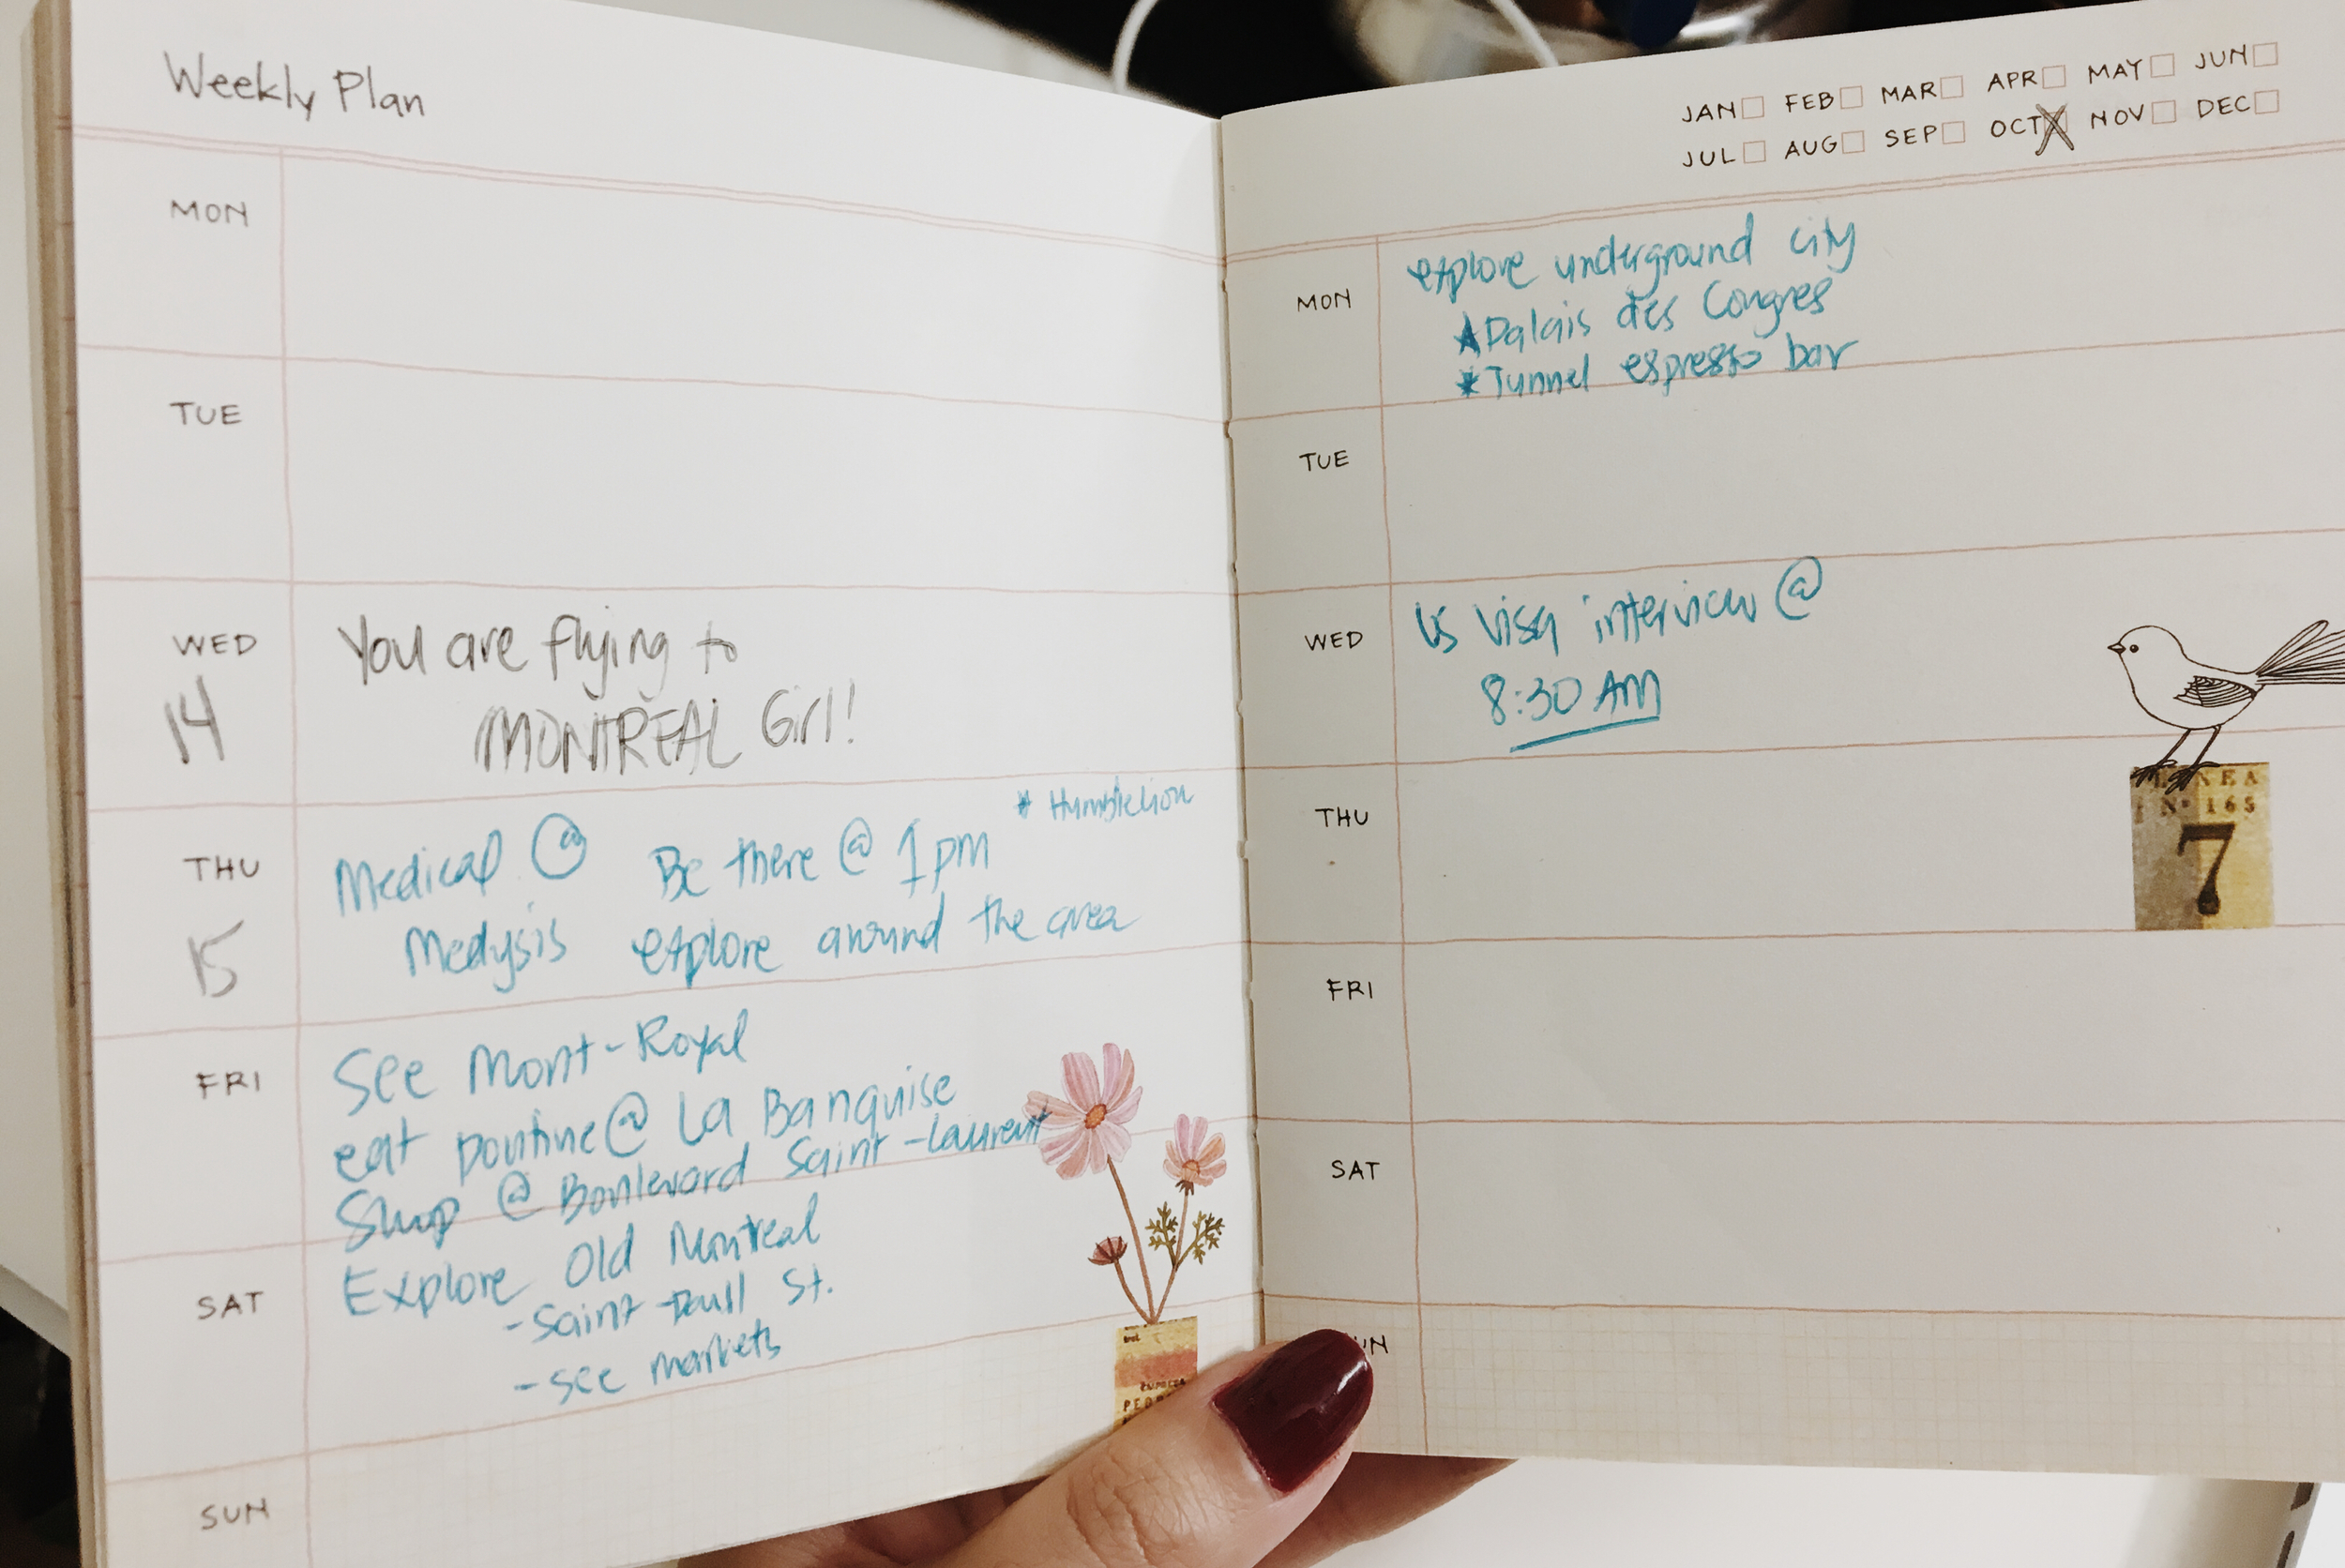 Weekly Plan
MON
TUE
WED
14
You are flying to
MONTREAL Girl!
THU
15
Medical @ Be there @ 1pm * Humble Lion
Medysis explore around the area
FRI
See Mont-Royal
eat poutine @ La Banquise
Shop @ Boulevard Saint-Laurent
SAT
Explore Old Montreal
- Saint Paull St.
- see markets
SUN
JAN FEB MAR APR MAY JUN
JUL AUG SEP OCT NOV DEC
MON
explore underground city
* Palais des Congres
* Tunnel espresso bar
TUE
WED
US Visa interview @
8:30 AM
THU
Nº 165
7
FRI
SAT